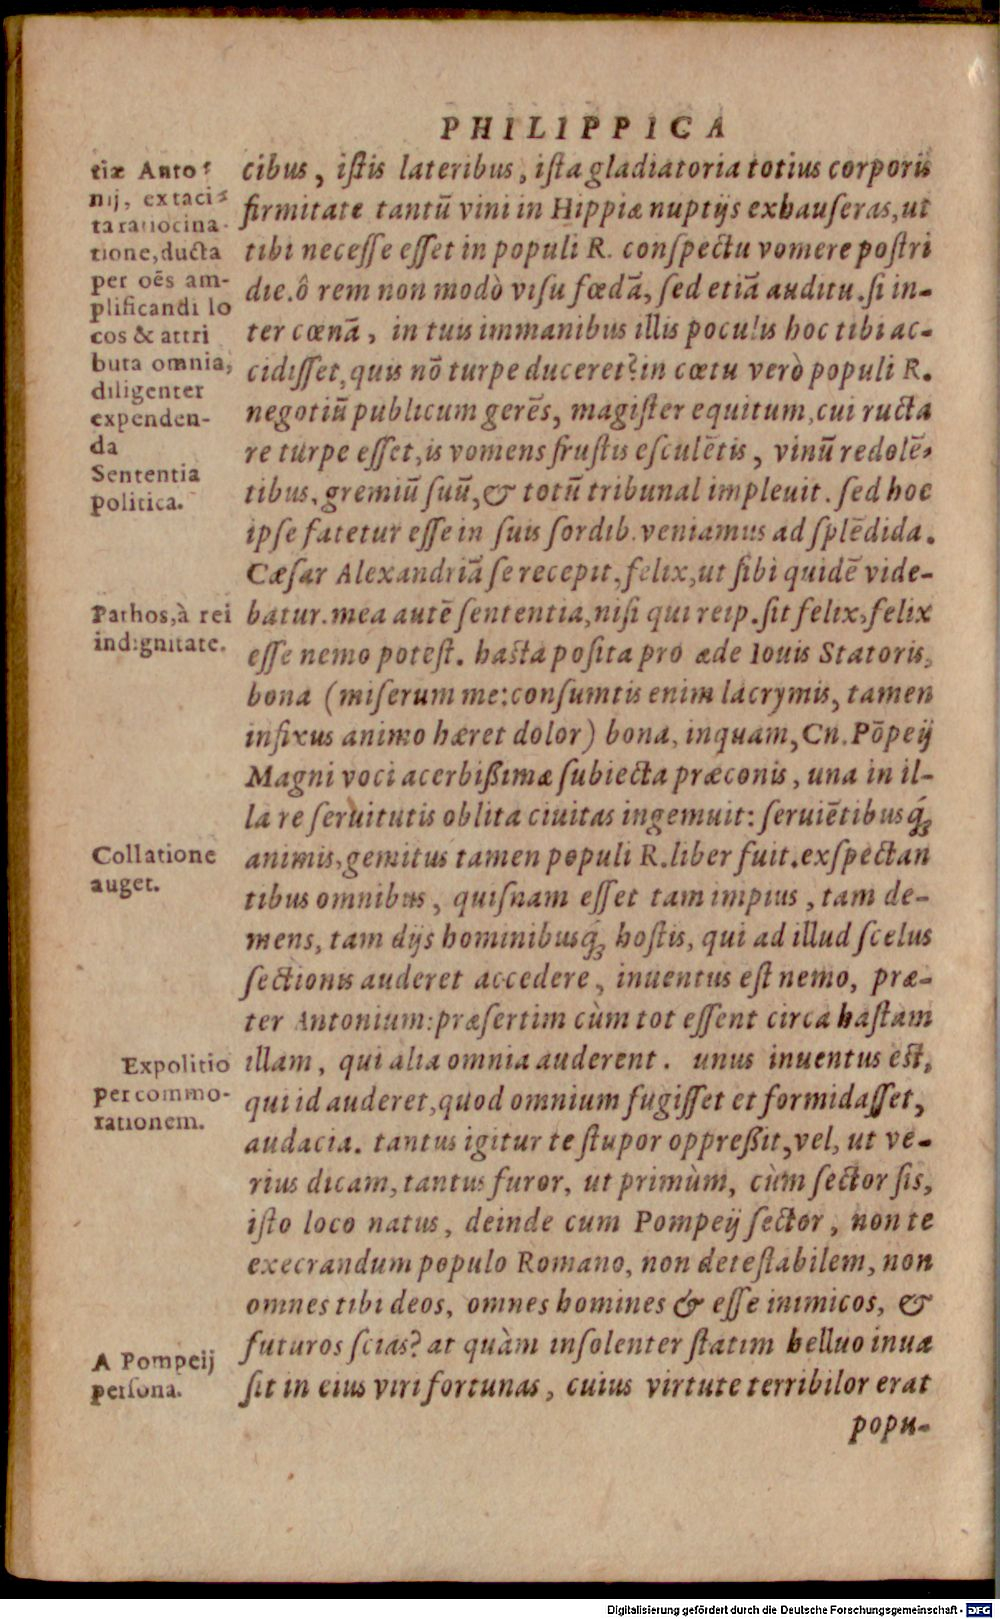 PHILIPPICA
tiæ Anto⸗
nij, ex taci⸗
ta ratiocina-
tione, ducta
per oēs am-
plificandi lo
cos & attri
buta omnia,
diligenter
expenden-
da
Sententia
politica.
Pathos, à rei
indignitate.
Collatione
auget.
Expolitio
per commo-
rationem.
A Pompeij
persona.
cibus, iſtis lateribus, iſta gladiatoria totius corporis
firmitate tantū vini in Hippiæ nuptijs exhauſeras, ut
tibi neceſſe eſſet in populi R. conſpectu vomere poſtri
die. ô rem non modò viſu fœdā, ſed etiā auditu. ſi in-
ter cœnā, in tuis immanibus illis poculis hoc tibi ac-
cidiſſet, quis nō turpe duceret? in cœtu verò populi R.
negotiū publicum gerēs, magiſter equitum, cui ructa
re turpe eſſet, is vomens fruſtis eſculētis, vinū redolē-
tibus, gremiū ſuū, & totū tribunal impleuit. ſed hoc
ipſe fatetur eſſe in ſuis ſordib. veniamus ad ſplēdida.
Cæſar Alexandriā ſe recepit, felix, ut ſibi quidē vide-
batur. mea autē ſententia, niſi qui reip. ſit felix, felix
eſſe nemo poteſt. haſta poſita pro æde Iouis Statoris,
bona (miſerum me: conſumtis enim lacrymis, tamen
infixus animo hæret dolor) bona, inquam, Cn. Pōpeij
Magni voci acerbißimæ ſubiecta præconis, una in il-
la re ſeruitutis oblita ciuitas ingemuit: ſeruiētibusq́;
animis, gemitus tamen populi R. liber fuit. exſpectan
tibus omnibus, quiſnam eſſet tam impius, tam de-
mens, tam dijs hominibusq́; hoſtis, qui ad illud ſcelus
ſectionis auderet accedere, inuentus eſt nemo, præ-
ter Antonium: præſertim cùm tot eſſent circa haſtam
illam, qui alia omnia auderent. unus inuentus eſt,
qui id auderet, quod omnium fugiſſet et formidaſſet,
audacia. tantus igitur te ſtupor oppreßit, vel, ut ve-
rius dicam, tantus furor, ut primùm, cùm ſector ſis,
iſto loco natus, deinde cum Pompeij ſector, non te
execrandum populo Romano, non deteſtabilem, non
omnes tibi deos, omnes homines & eſſe inimicos, &
futuros ſcias? at quàm inſolenter ſtatim helluo inuæ
ſit in eius viri fortunas, cuius virtute terribilor erat
popu-
Digitalisierung gefördert durch die Deutsche Forschungsgemeinschaft - DFG